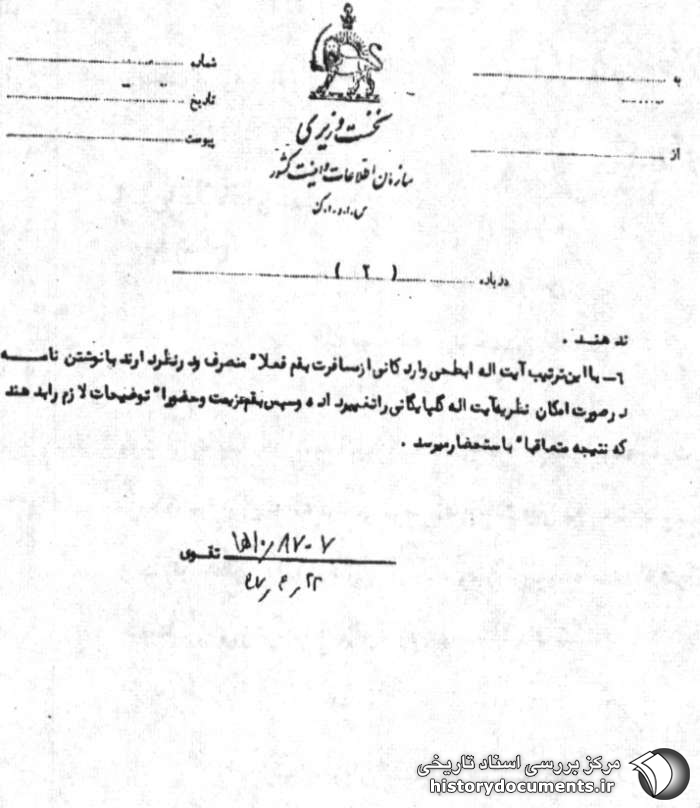 شماره
تاریخ
پیوست
به
از
نخست وزیری
سازمان اطلاعات و امنیت کشور
س.ا.و.ا.ک
درباره ( ۲ )
ند هند .
۶- با این ترتیب آیت اله ابطحی و اردکانی از مسافرت بقم فعلا" منصرف و در نظر دارند با نوشتن نامه
در صورت امکان نظریه آیت اله گلپایگانی را تغییر داده و سپس بقم عزیمت و حضورا" توضیحات لازم را بدهند
که نتیجه متعاقبا" باستحضار میرسد .
تقوی
مرکز بررسی اسناد تاریخی
historydocuments.ir